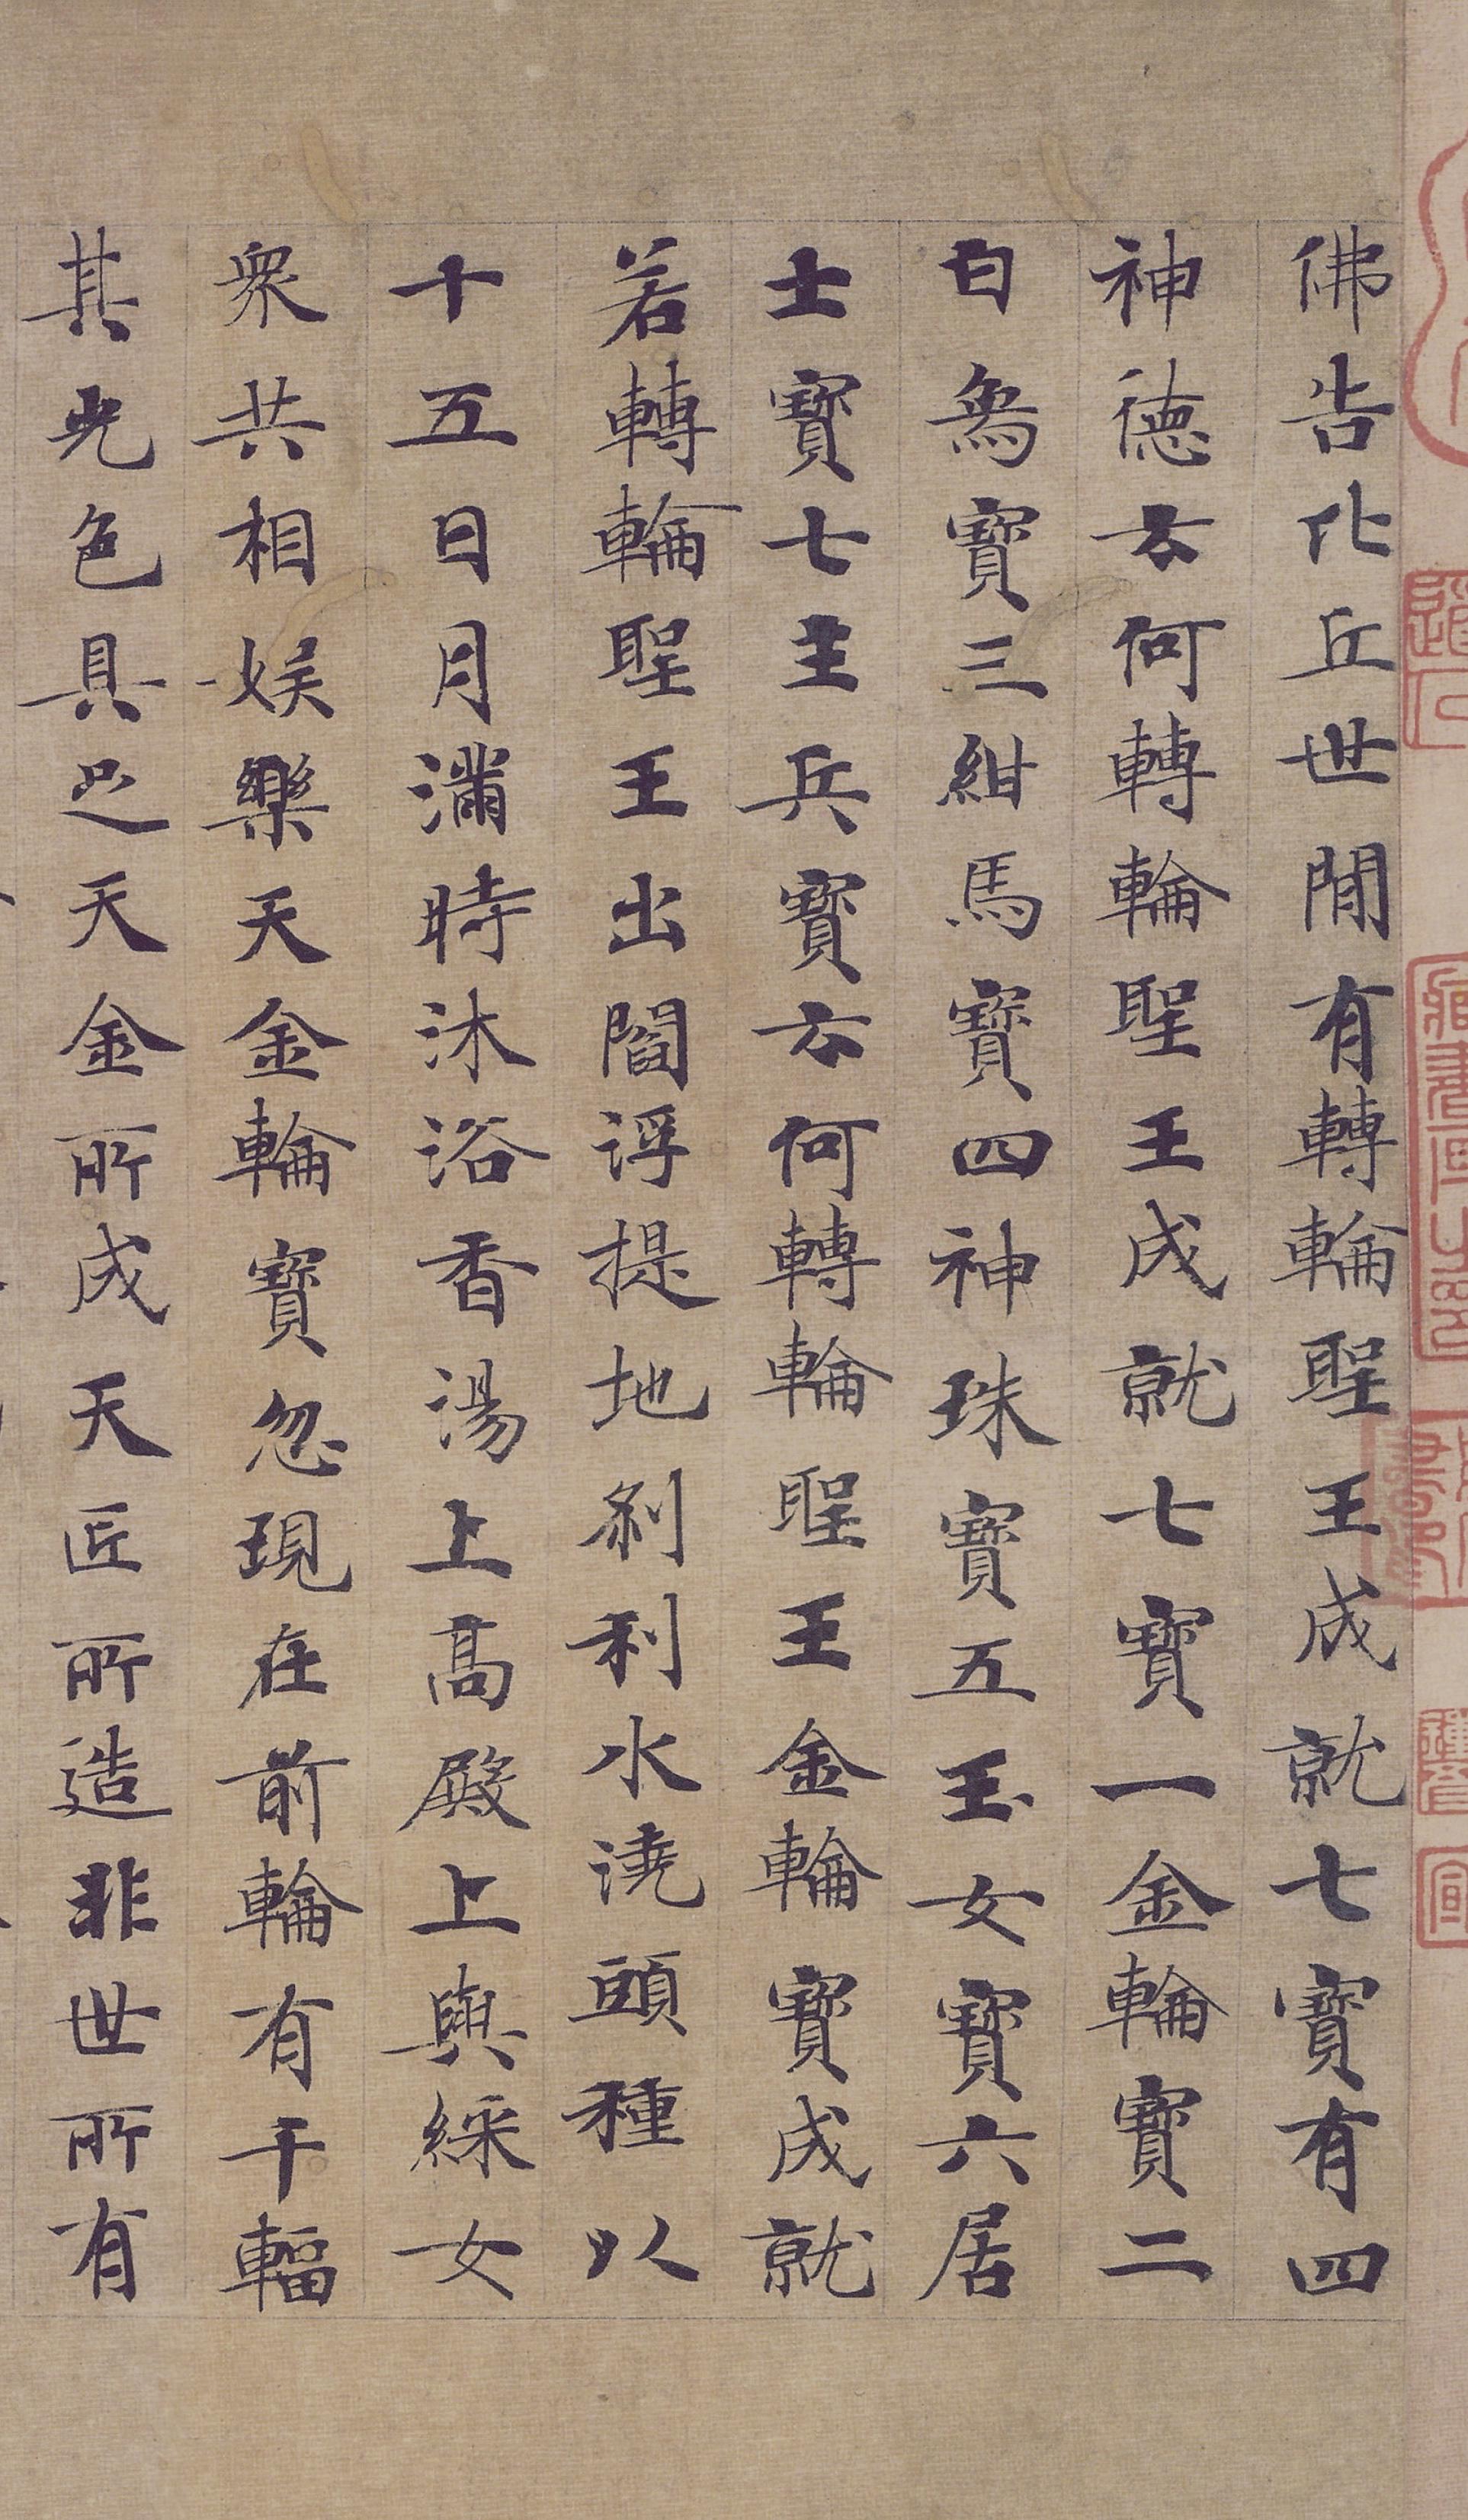 佛告比丘世間有轉輪聖王成就七寶有四
神德云何轉輪聖王成就七寶一金輪寶二
白鳥寶三紺馬寶四神珠寶五玉女寶六居
士寶七主兵寶云何轉輪聖王金輪寶成就
若轉輪聖王出閻浮提地剎利水澆頭種以
十五日月滿時沐浴香湯上高殿上與綵女
眾共相娛樂天金輪寶忽現在前輪有千輻
其光色具足天金所成天匠所造非世所有